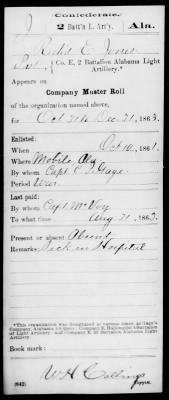 Confederate.
J 2 Batt'n L. Art'y. Ala.
Robt E. Jones
Pvt., Co. E, 2 Battalion Alabama Light
Artillery.*
Appears on
Company Muster Roll
of the organization named above,
for Oct 31 to Dec. 31, 1863.
Enlisted:
When Oct 10, 1861.
Where Mobile, Ala
By whom Capt. C.
Period War
Last paid:
By whom Capt. McVoy
To what time Aug 31, 1863.
Present or absent Absent
Remarks: Sick in Hospital
*This organization was designated at various times as Gage's
Company, Alabama Artillery
Light Artillery and Company E, 2d Battalion Alabama Light
Artillery.
Book mark:
(642) W H Collins
Copyist.